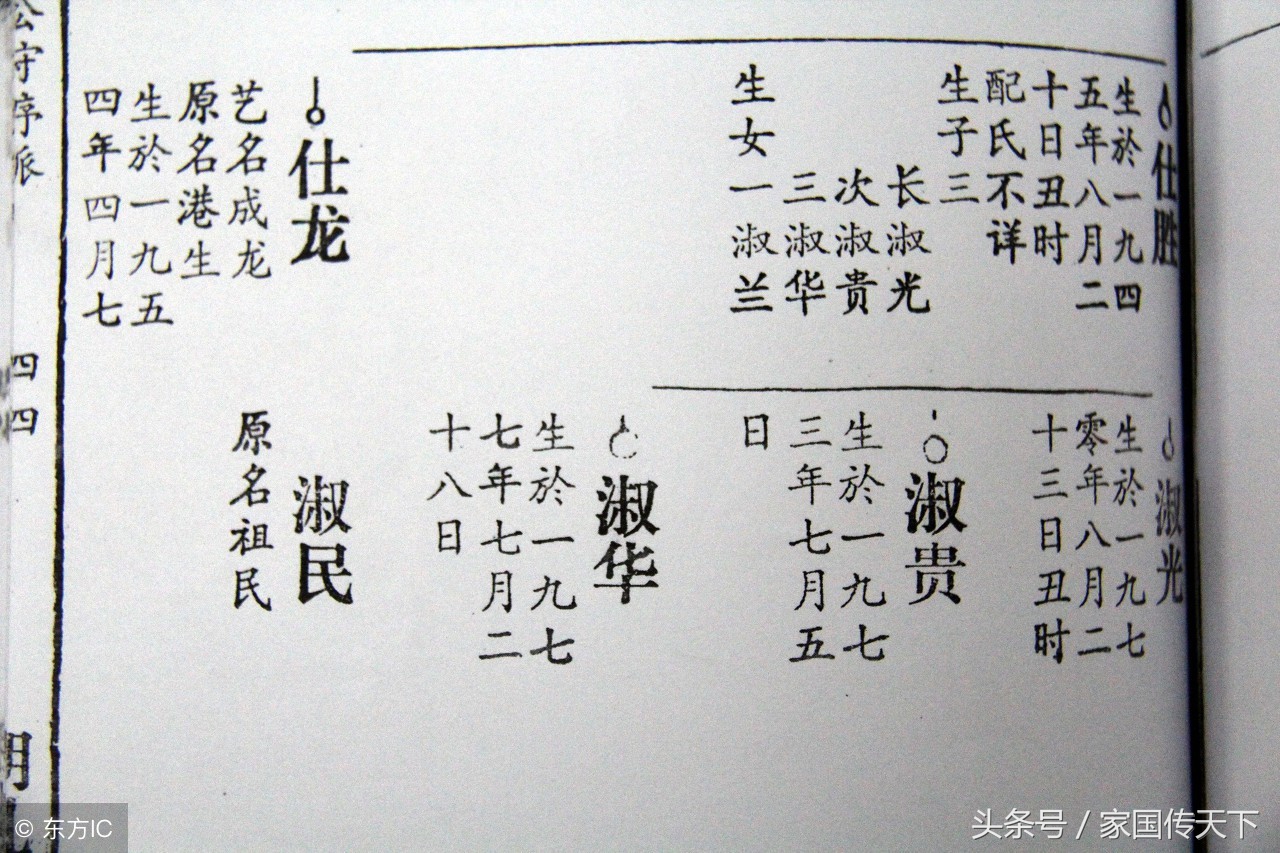 仕胜
生於一九四
五年八月二
十日丑时
配氏不详
生子三
长淑光
次淑贵
三淑华
生女一淑兰
仕龙
艺名成龙
原名港生
生於一九五
四年四月七
淑光
生於一九七
零年八月二
十三日丑时
淑贵
生於一九七
三年七月五
日
淑华
生於一九七
七年七月二
十八日
淑民
原名祖民
公守序派
四四
明
© 东方IC
头条号 / 家国传天下